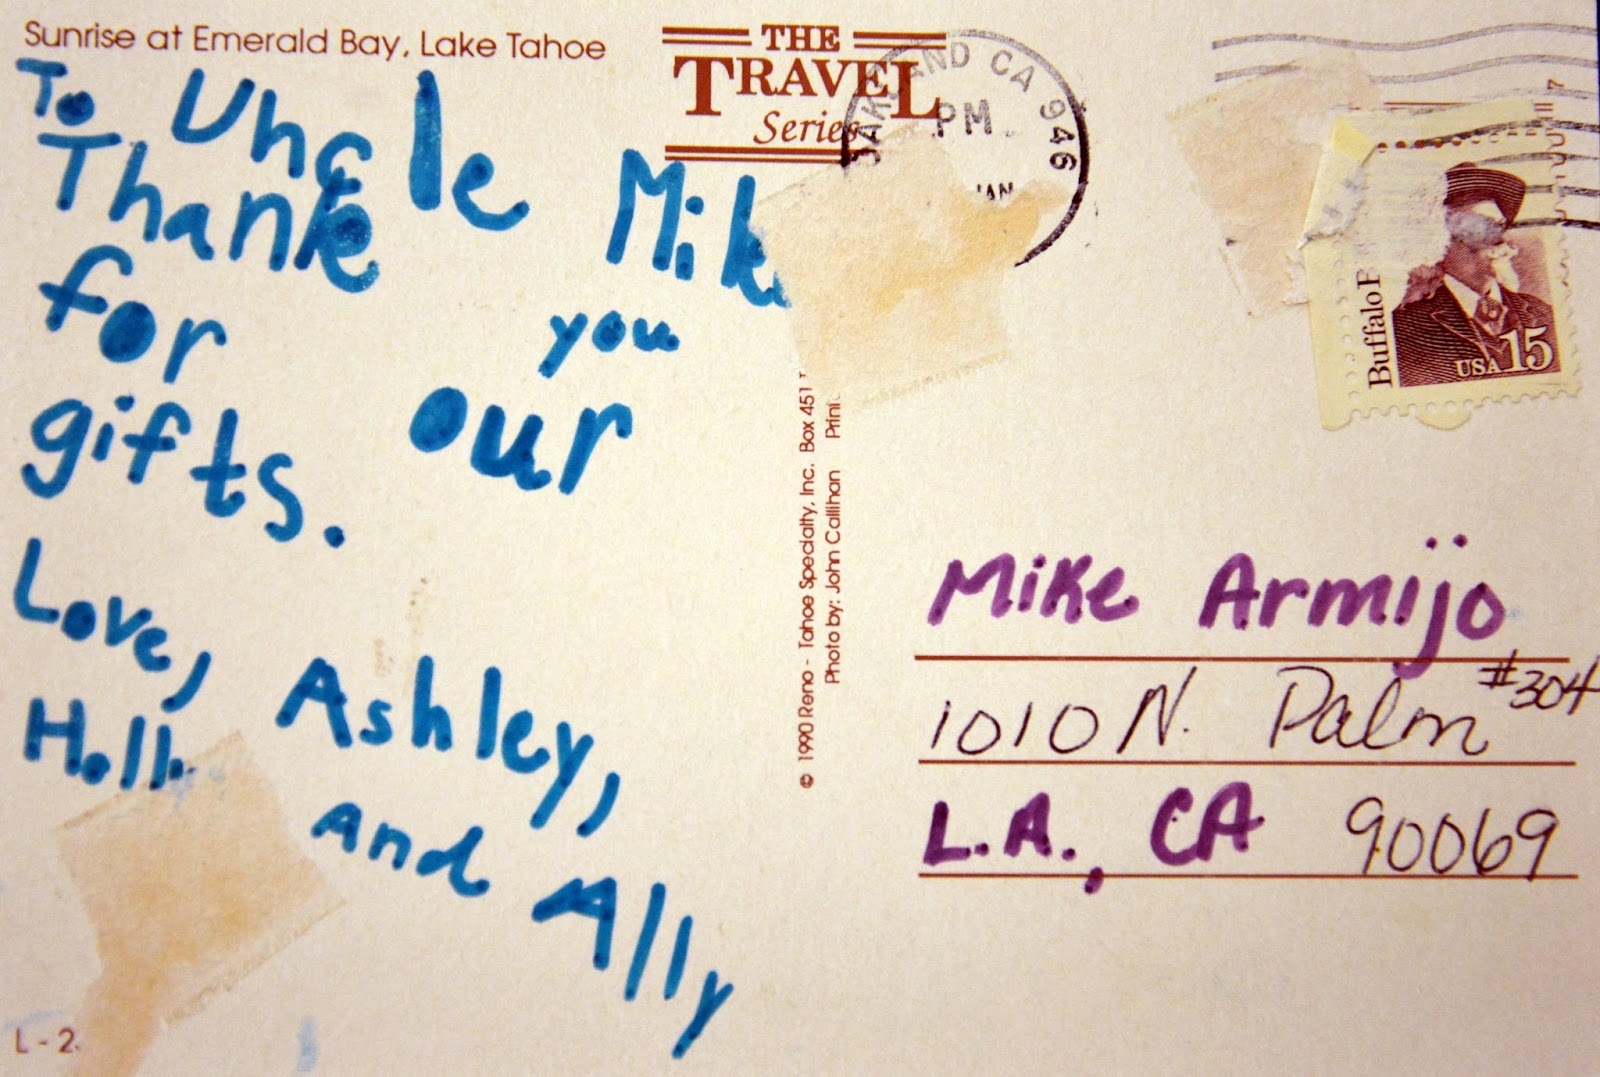 Sunrise at Emerald Bay, Lake Tahoe
To Uncle Mik
Thank you
for our
gifts.
Love, Ashley,
Holl and Ally
L - 2
THE
TRAVEL
Series
LAND CA 946
PM
© 1990 Reno - Tahoe Specialty, Inc. Box 451
Photo by: John Callihan
Buffalo
USA 15
Mike Armijo
1010 N. Palm #304
L.A., CA 90069